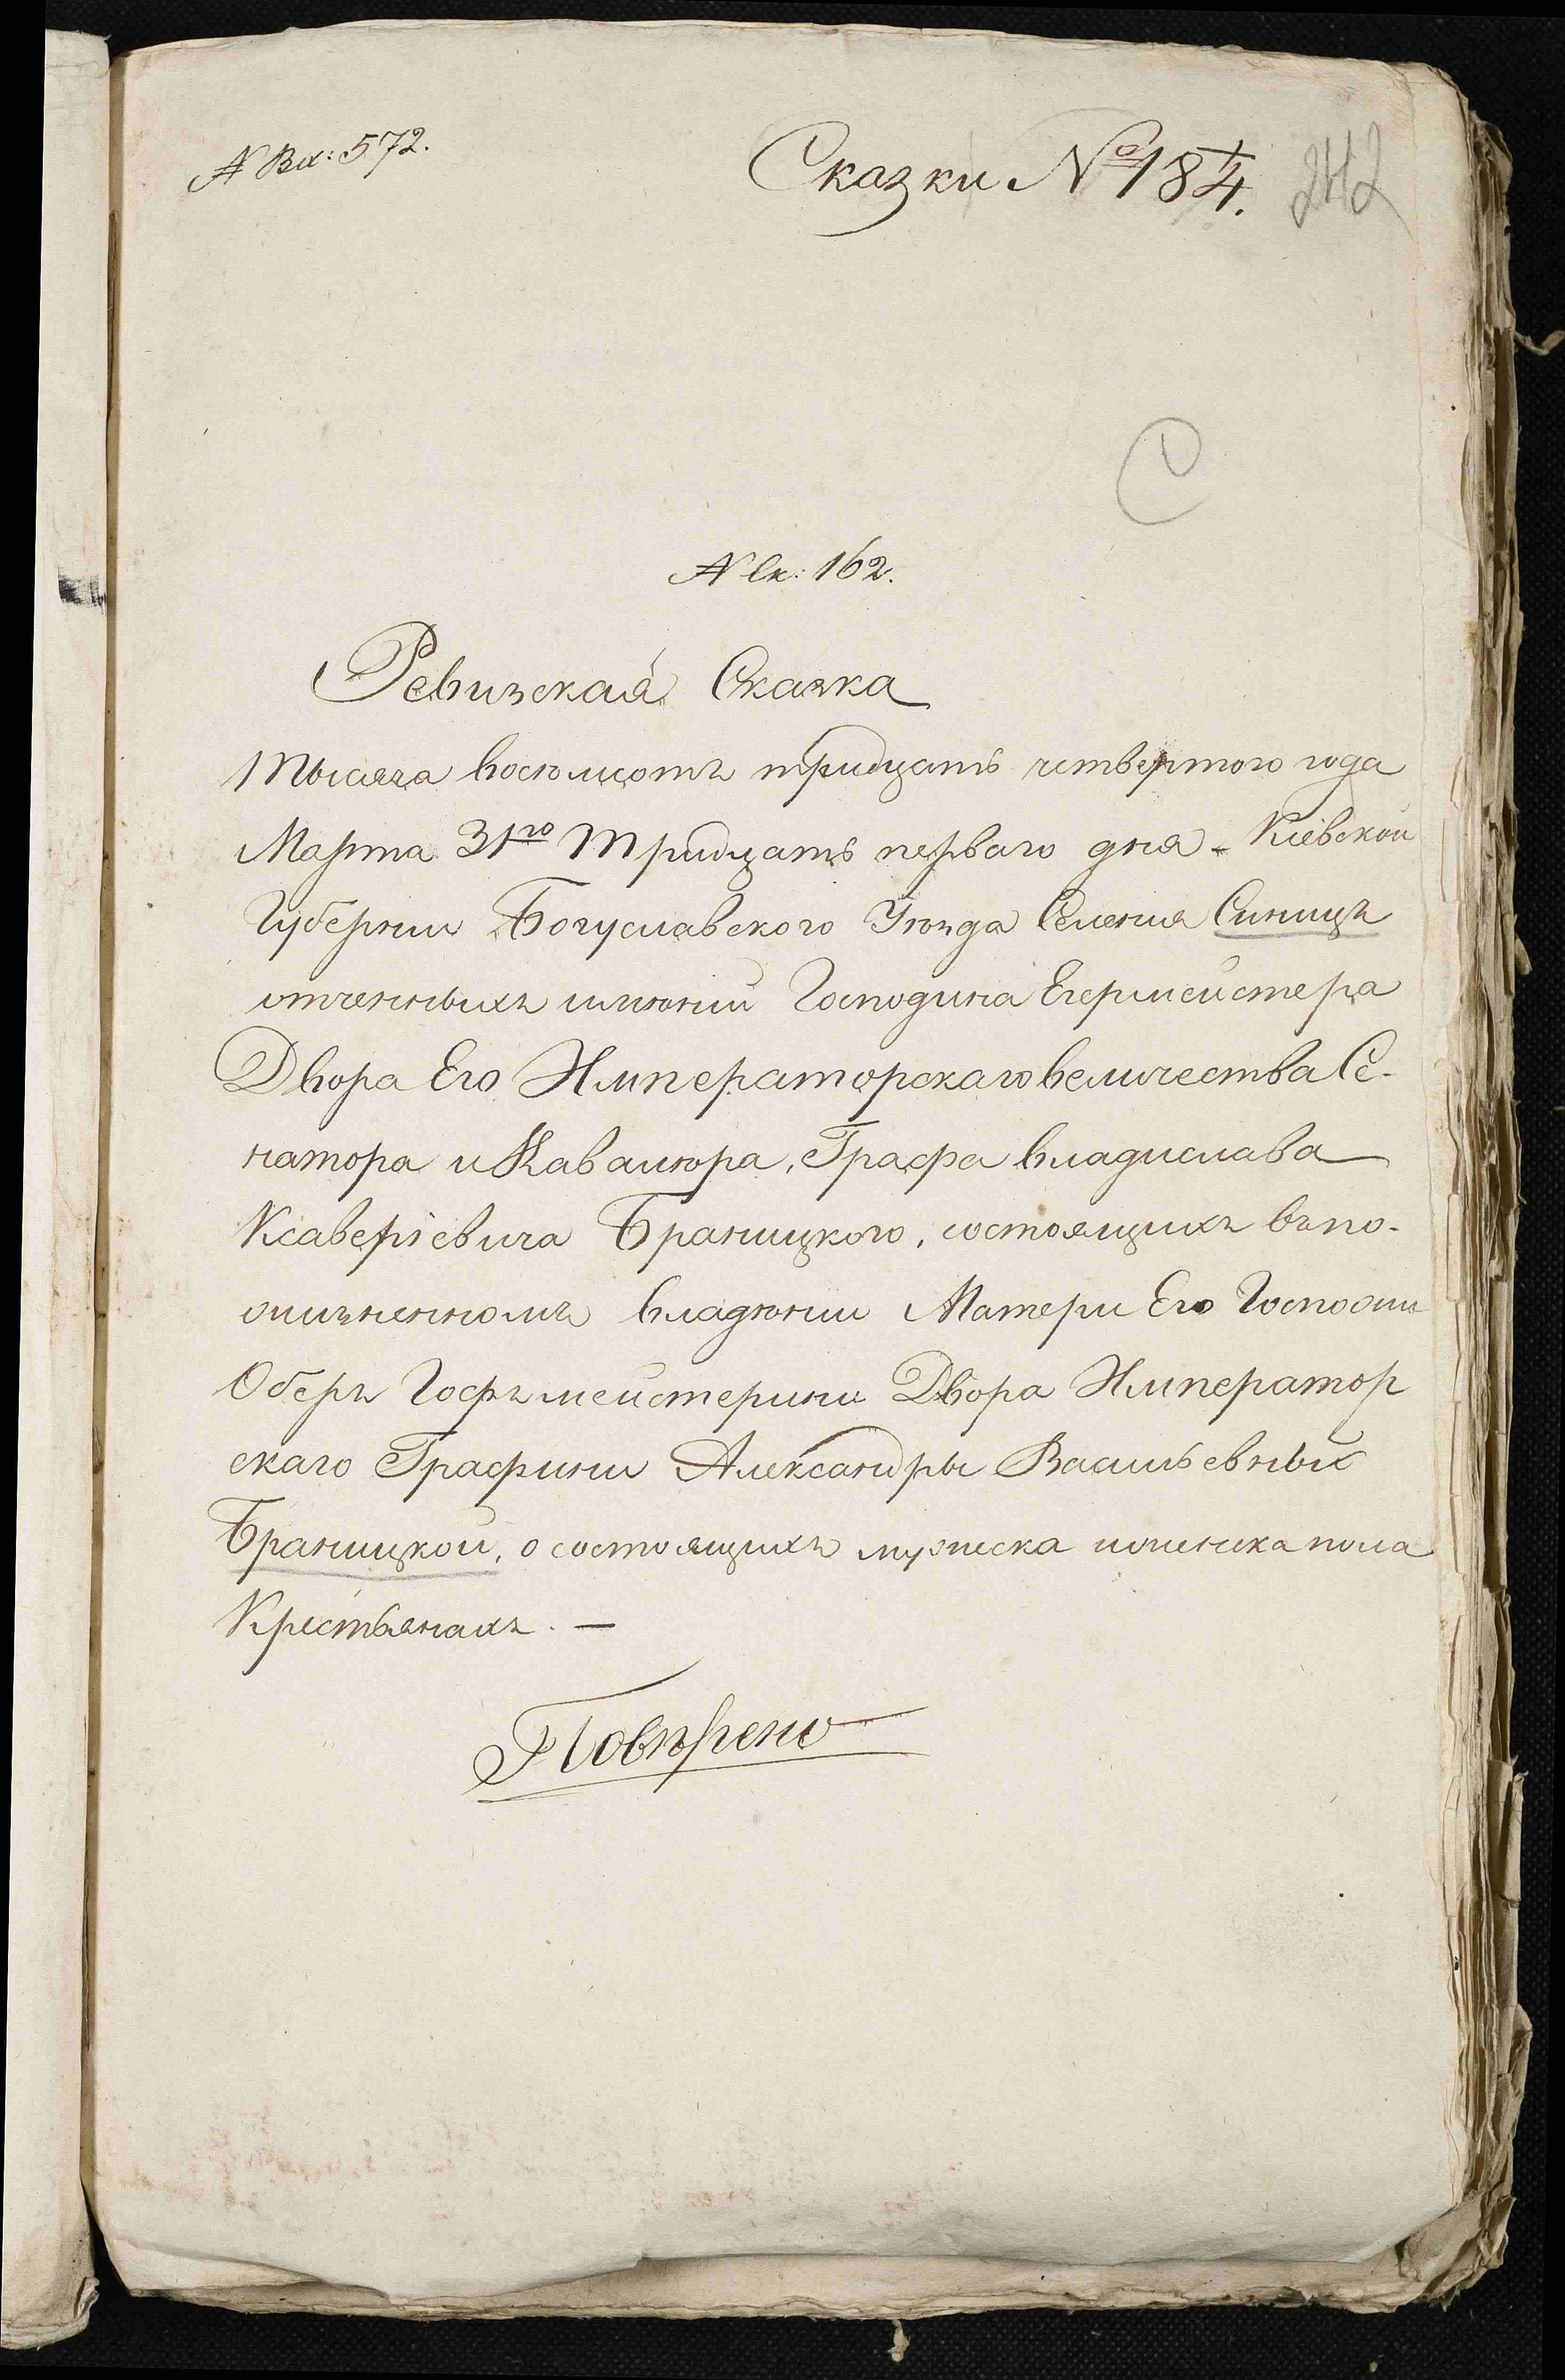 N Вх: 572.
Сказки № 184.
242
N Ск: 162.
Ревизская Сказка
Тысяча восѣмсотъ тридцать четвертого года
Марта 31го Тридцать перваго дня Кіевской
Губернии Богуславского Уѣзда Селения Синицъ
отченныхъ имѣний Господина Егермейстера
Двора Его Императорскаго величества Се-
натора и Кавалѣра, Графа владислава
Ксаверіевича Браницкого, состоящихъ въ по-
жизненномъ владѣнии Матери Его Госпожи
Оберъ Гофъмейстерини Двора Император
скаго Графини Александры Васильевных
Браницкой, о состоящихъ мужеска и женска пола
Крестьянахъ. —
Повѣрено